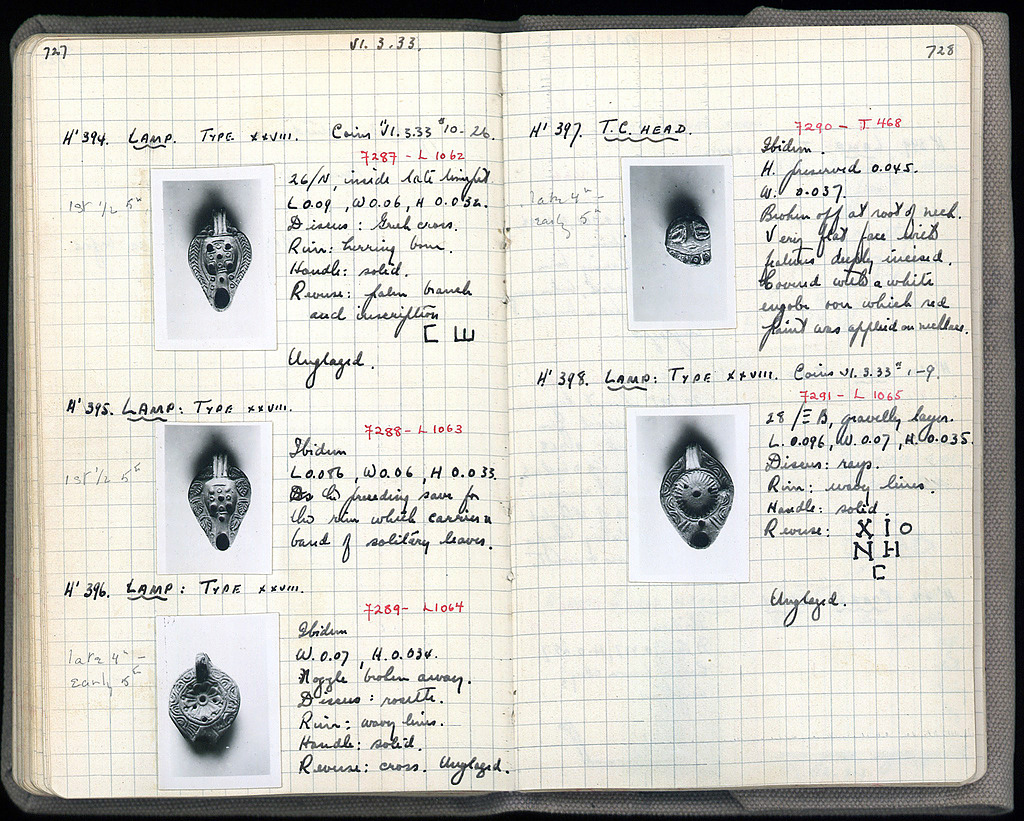 727
VI. 3. 33.
H' 394. LAMP. TYPE XXVIII. Coins VI.3.33 #10-26.
7287 - L 1062
26/N, inside late
L 0.09, W 0.06, H 0.032.
Discus: Greek cross.
Rim: herring bone.
Handle: solid.
Reverse: palm branch
and inscription
C E
Unglazed.
1st 1/2 5th
H' 395. LAMP: TYPE XXVIII.
7288 - L 1063
Ibidem
L 0.086, W 0.06, H 0.033.
As the preceding save for
the rim which carries a
band of solitary leaves.
1st 1/2 5th
H' 396. LAMP: TYPE XXVIII.
7289 - L 1064
Ibidem
W. 0.07, H. 0.034.
Nozzle broken away.
Discus: rosette.
Rim: wavy lines.
Handle: solid.
Reverse: cross. Unglazed.
late 4th -
early 5th
728
H' 397. T.C. HEAD.
7290 - T 468
Ibidem.
H. preserved 0.045.
W. 0.037.
Broken off at root of neck.
Very flat face with
features deeply incised.
Covered with a white
engobe over which red
paint was applied on necklace.
late 4th -
early 5th
H' 398. LAMP: TYPE XXVIII. Coins VI.3.33 # 1-9.
7291 - L 1065
28/Ξ B, gravelly layer.
L. 0.096, W. 0.07, H. 0.035.
Discus: rays.
Rim: wavy lines.
Handle: solid.
Reverse: X I O
N H
C
Unglazed.